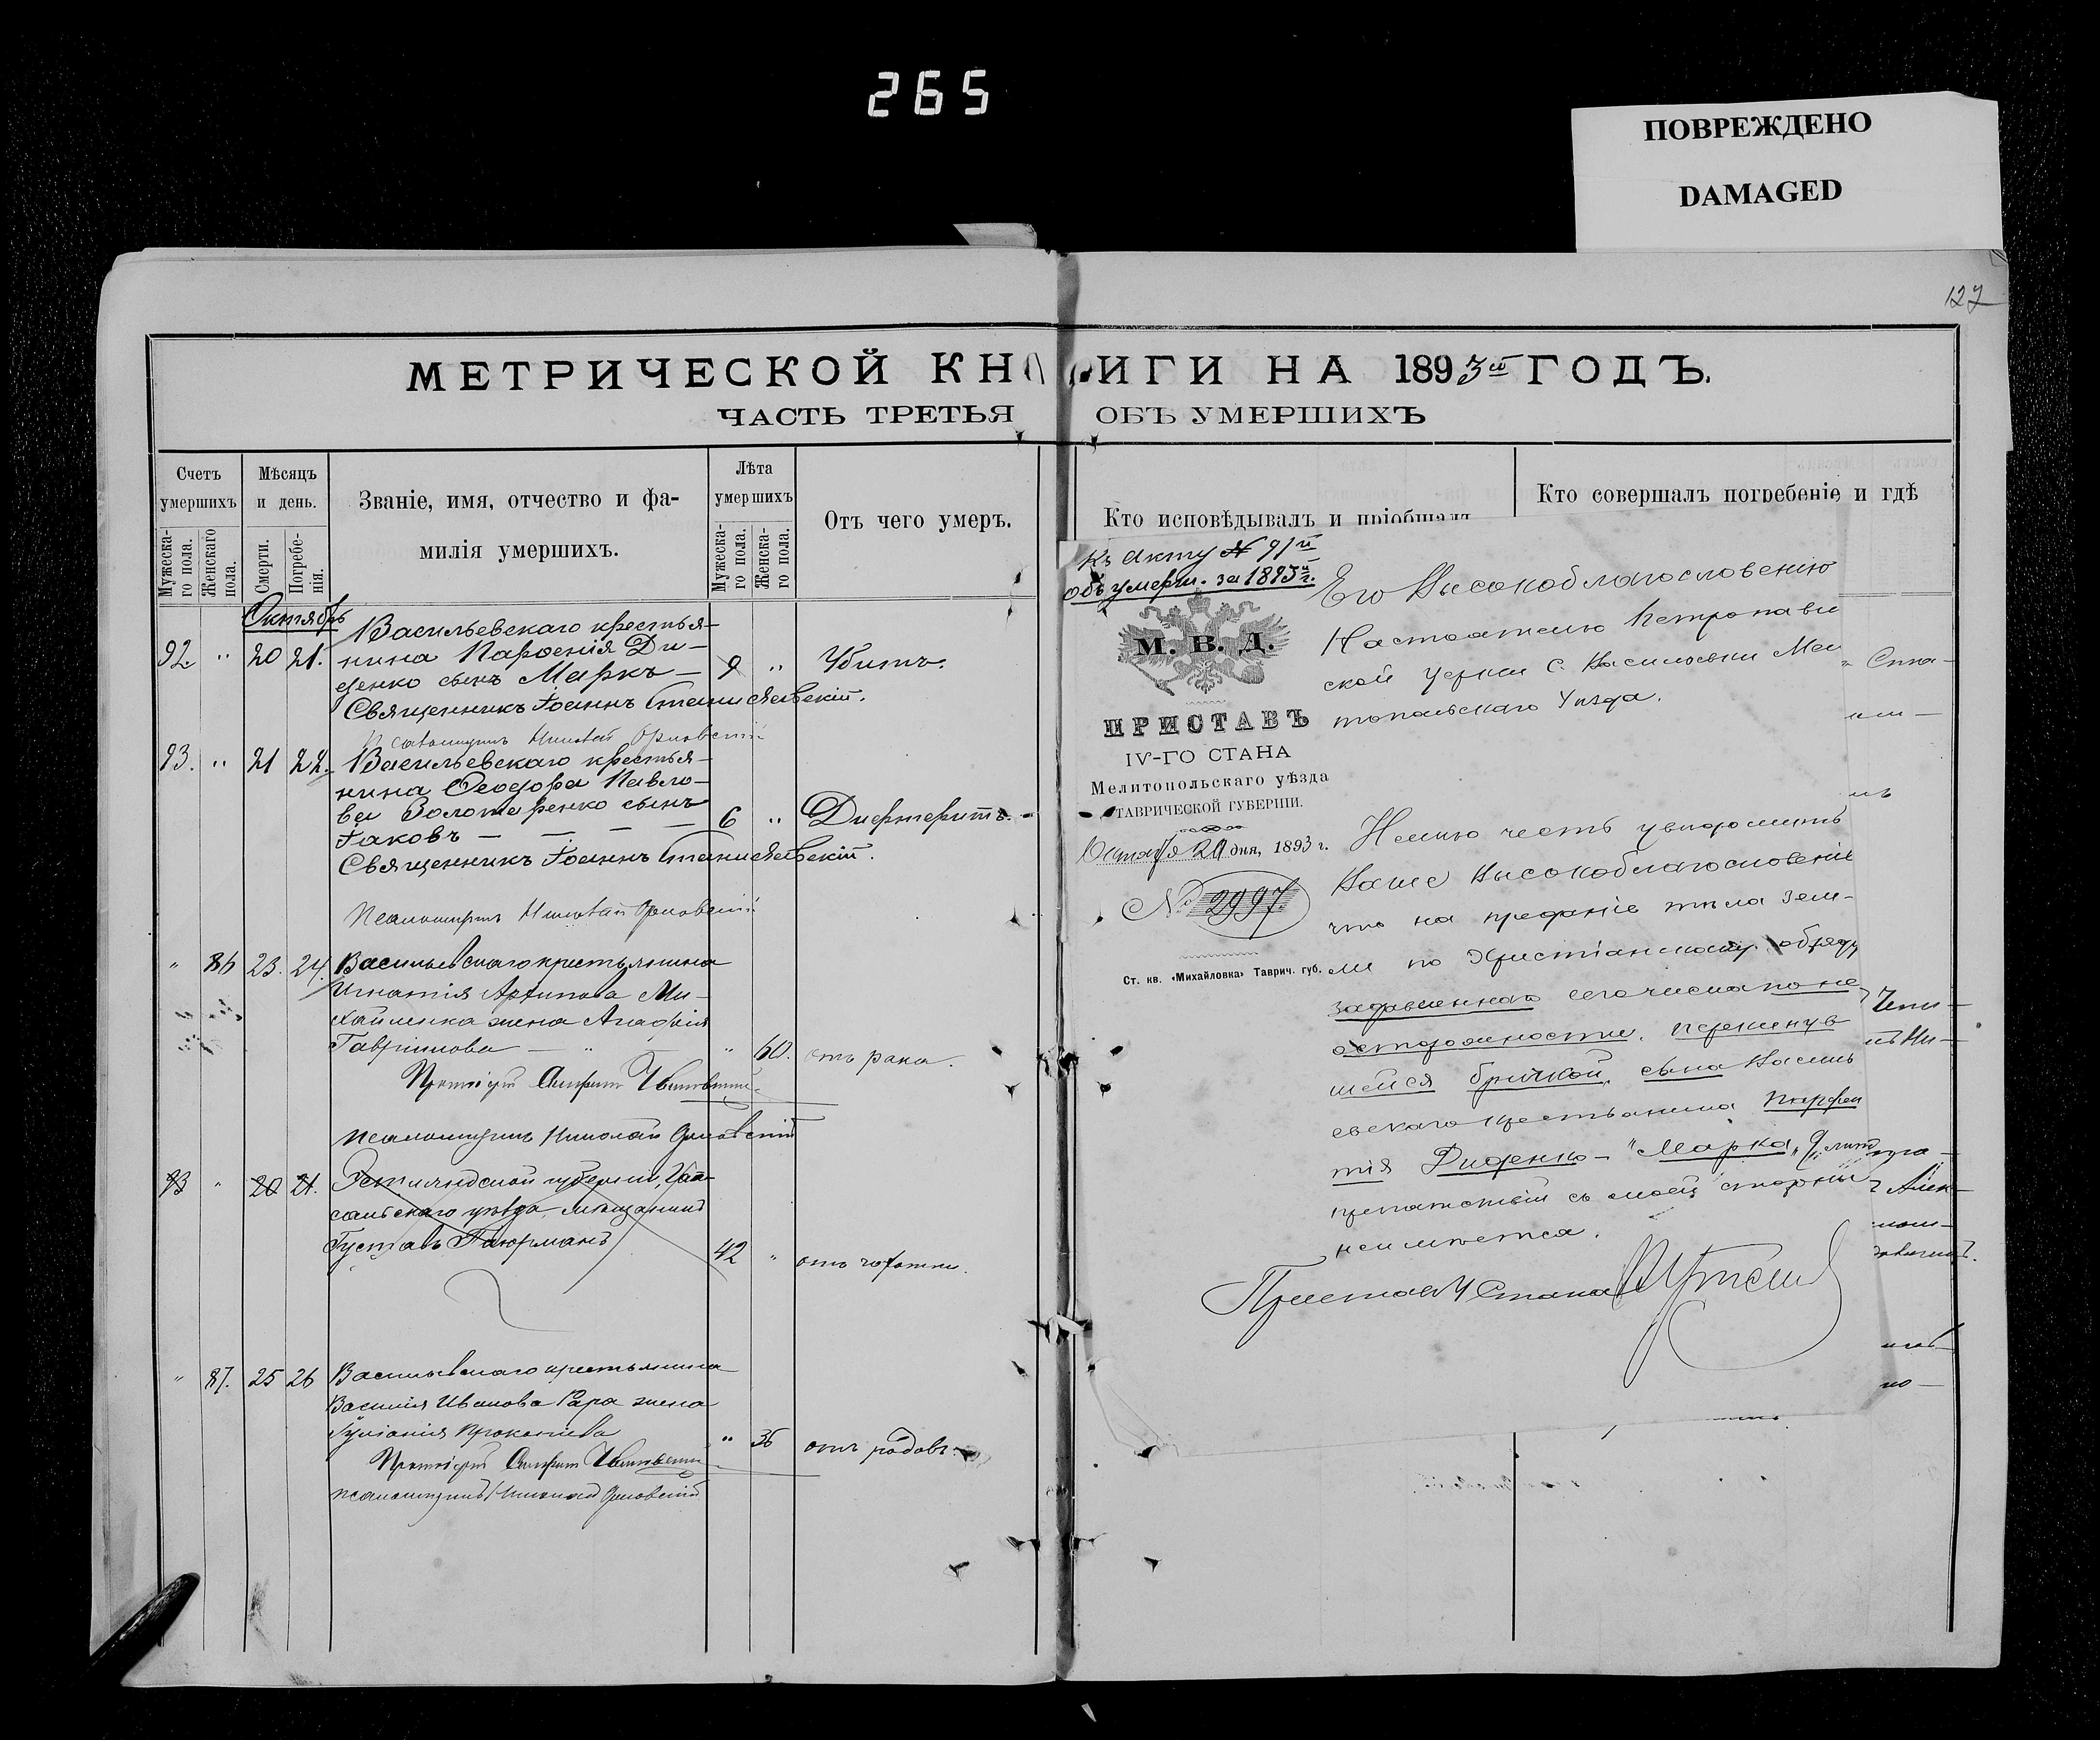 265
ПОВРЕЖДЕНО
DAMAGED
127
МЕТРИЧЕСКОЙ КН ИГИ НА 1893й ГОДЪ.
ЧАСТЬ ТРЕТЬЯ ОБЪ УМЕРШИХЪ
Счетъ умершихъ
Мужескаго пола.
Женскаго пола.
Мѣсяцъ и день.
Смерти.
Погребенія.
Званіе, имя, отчество и фамилія умершихъ.
Лѣта умершихъ
Мужескаго пола.
Женскаго пола.
Отъ чего умеръ.
Октябрь
92. " 20 21. Васильевскаго крестья-
нина Парфенія Ди-
денко сынъ Маркъ — 9 " Убитъ.
Священникъ Іоаннъ Станиславскій.
Псаломщикъ Николай Орловскій
93. " 21 22. Васильевскаго крестья-
нина Ѳеодора Павло-
ва Золотаренко сынъ
Іаковъ — — — — 6 " Дифтеритъ.
Священникъ Іоаннъ Станиславскій.
Псаломщикъ Николай Орловскій
" 86 23. 24. Васильевскаго крестьянина
Игнатія Архипова Ми-
хайленка жена Агафія
Гавріилова — " — " 60. отъ рака.
Протоіерей
Псаломщикъ Николай Орловскій
93 " 20 21. Эстляндской губерніи, Гап-
сальскаго уѣзда, мѣщанинъ
Густавъ 42 " отъ чахотки.
" 87. 25 26 Васильевскаго крестьянина
Василія Иванова Гара жена
Іуліанія Прокопіева " 36 отъ родовъ.
Протоіерей
псаломщикъ Николай Орловскій
Кто исповѣдывалъ и пріобщалъ
Кто совершалъ погребеніе и гдѣ
Къ акту № 91й
объ умерш. за 1893й г.
М. В. Д.
ПРИСТАВЪ
IV-ГО СТАНА
Мелитопольскаго уѣзда
ТАВРИЧЕСКОЙ ГУБЕРНІИ.
Октября 20 дня, 1893 г.
№ 2997.
Ст. кв. «Михайловка» Таврич. губ.
Его Высокоблагословенію
Настоятелю Петропавл
ской церкви с. Васильевки Мели
топольскаго уѣзда.
Имѣю честь увѣдомить
Ваше Высокоблагословеніе
что на преданіе тѣла зем-
ли по Христіанскому обряду
задавленнаго сего числа по не
осторожности, перекинув
шейся бричкой, сына Василь
евскаго крестьянина Парфен
тія Диденко — "Марка" 9 лѣтъ
препятствій съ моей стороны
не имѣется.
Приставъ 4 Стана